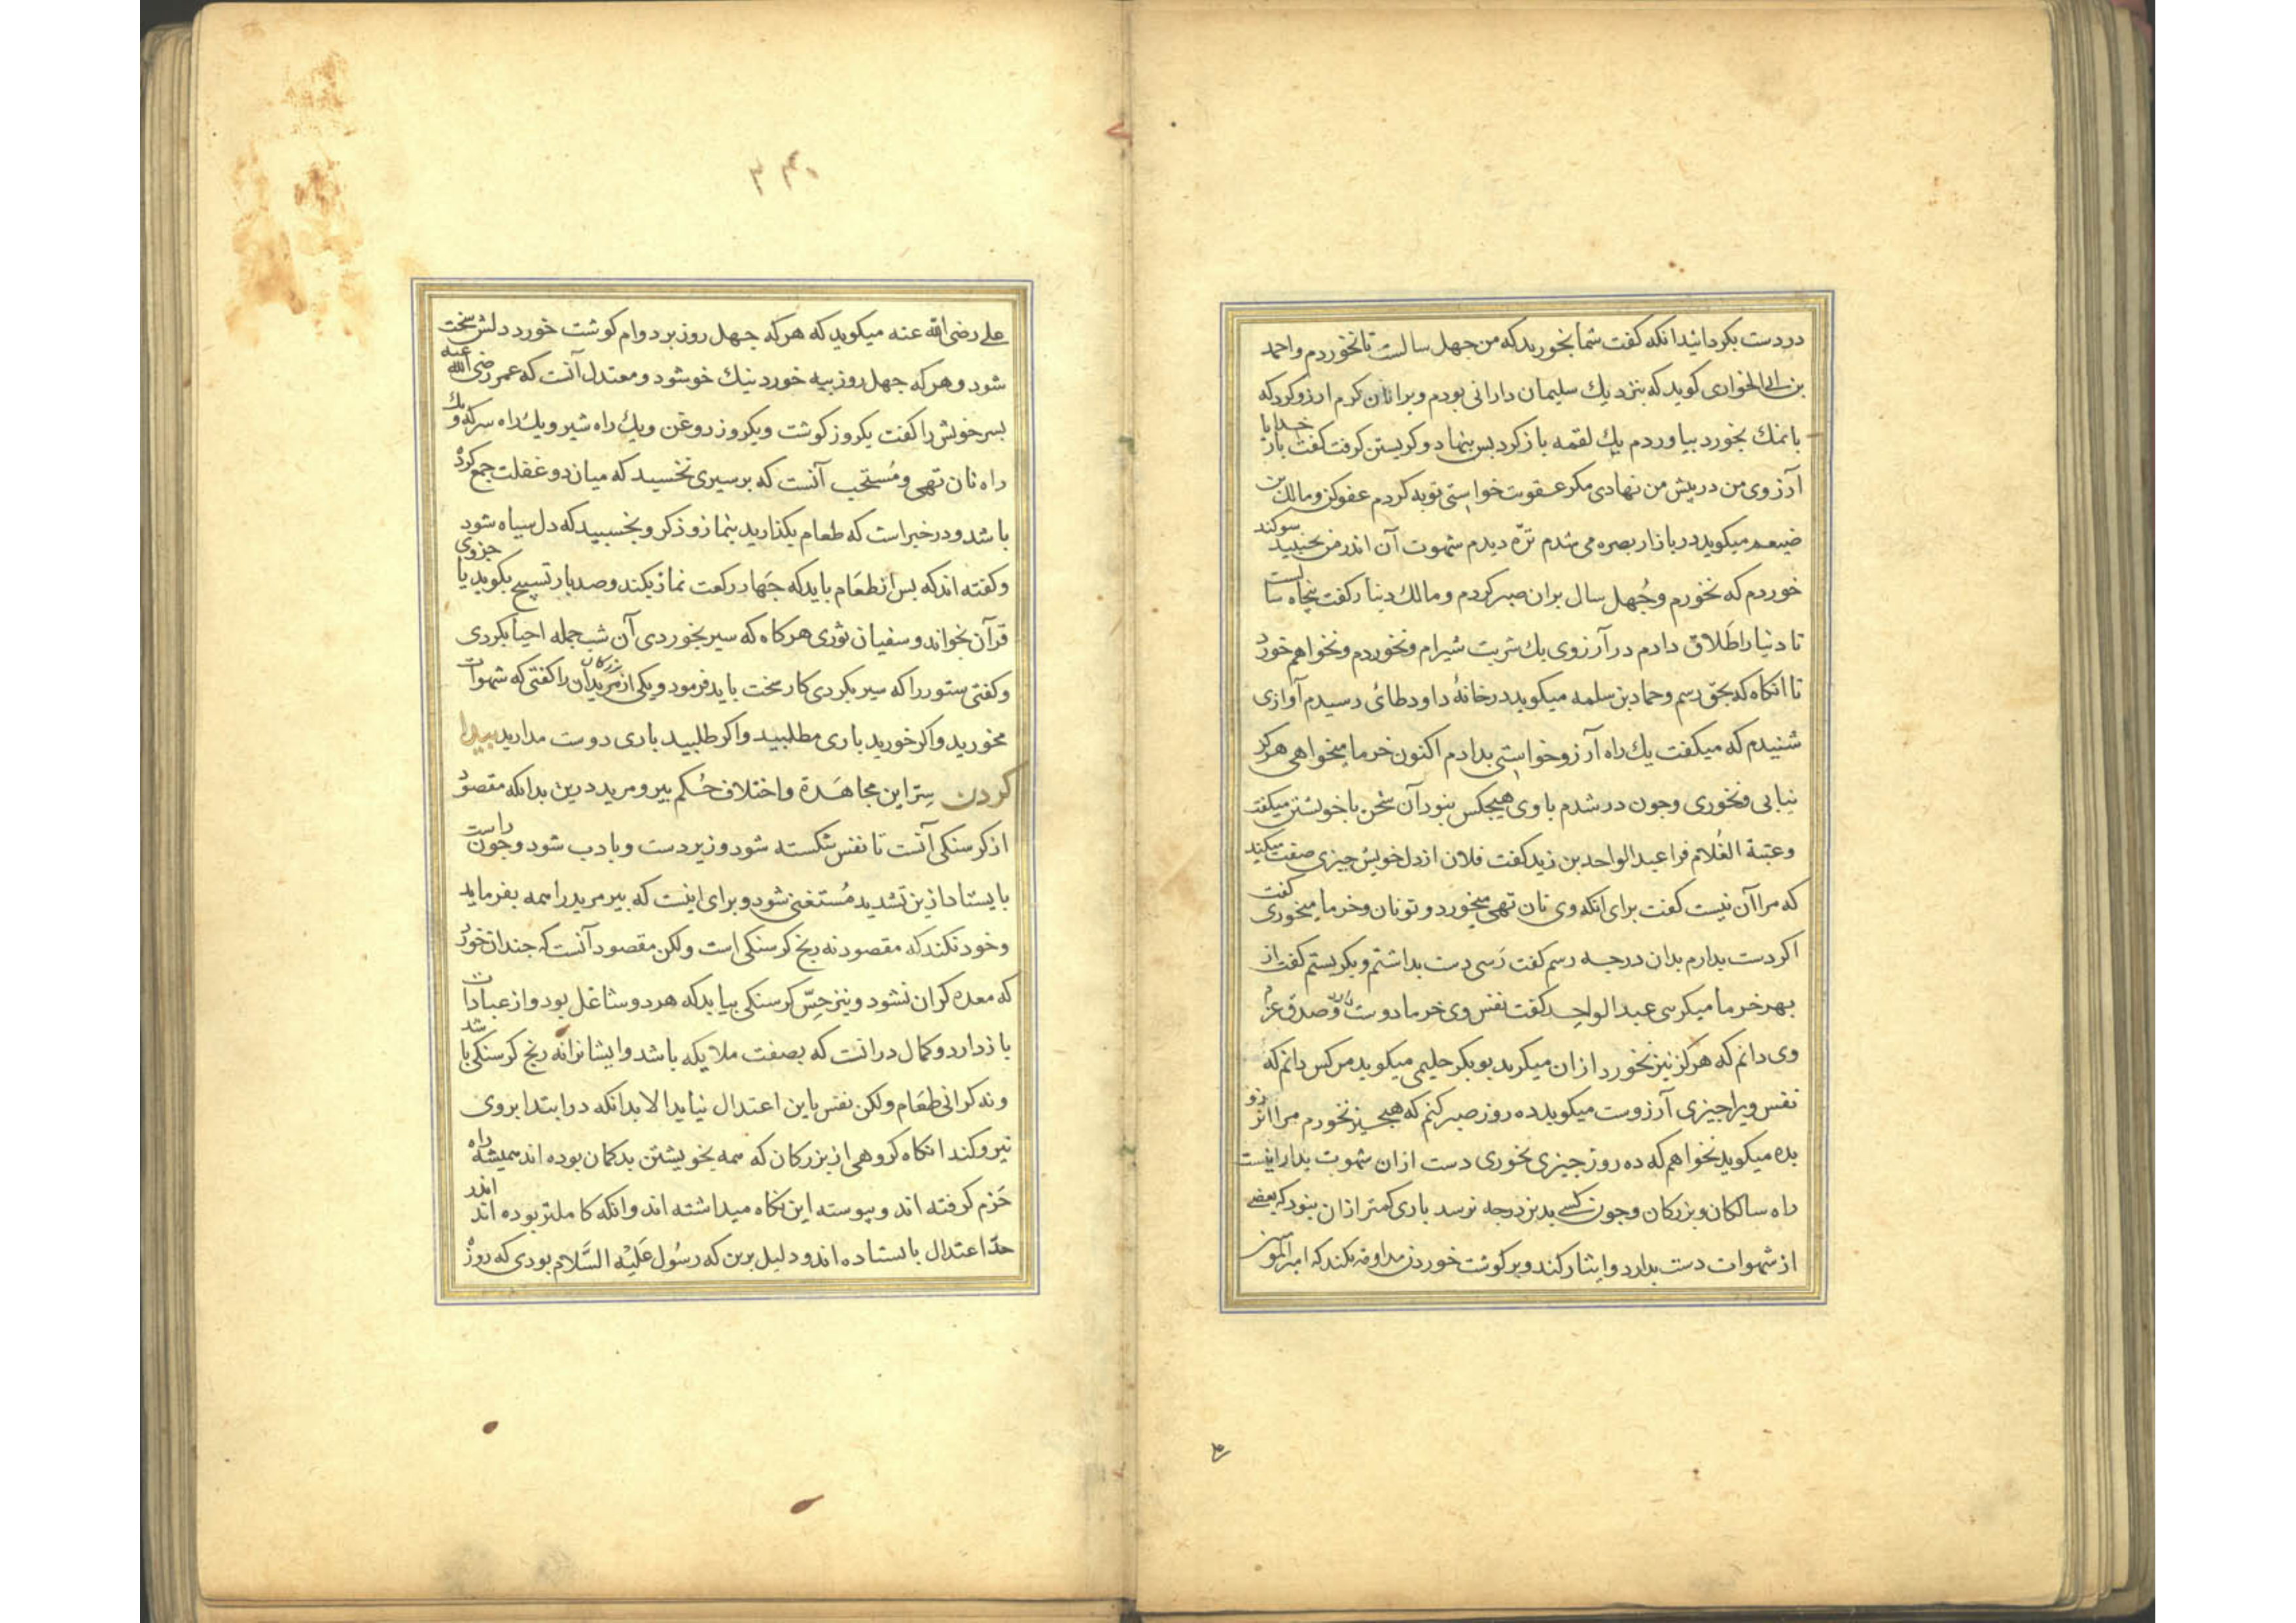 در دست بکردانید انکه کفت شما بخورید که من جهل سالست تا نخوردم و احمد
بن ابی الحواری کوید که بنزدیك سلیمان دارانی بودم ویرا نان کرم ارزو کرد که
با نمك بخورد بیاوردم یك لقمه باز کرد بس بنهاد و کریستن کرفت کفت بار خدایا
آرزوی من در پیش من نهادی مکر عقوبت خواستی توبه کردم عفو کن و مالك بن
ضیغم میکوید در بازار بصره می شدم ترّه دیدم شهوت آن اندر من بجنبید سوکند
خوردم که نخورم و جُهل سال بران صبر کردم و مالك دینار کفت پنجاه سالست
تا دنیا را طَلاق دادم در آرزوی یك شربت شیرام و نخوردم و نخواهم خورد
تا انکاه که بحق رسم و حماد بن سلمه میکوید در خانهٔ داود طائی رسیدم آوازی
شنیدم که میکفت یك راه آرزو خواستی بدادم اکنون خرما میخواهی هرکز
نیابی و نخوری وجون در شدم با وی هیجکس نبود آن سخن با خویشتن میکفت
وعتبة الغُلام فرا عبد الواحد بن زید کفت فلان از دل خویش جیزی صفت میکند
که مرا آن نیست کفت برای انکه وی نان تهی میخورد و تو نان و خرما میخوری کفت
اکر دست بدارم بدان درجه رسم کفت رَسی دست بداشتم و بکریستم کفت از
بهر خرما میکرسی عبد الواحد کفت نفس وی خرما دوست دارد و صدق عزم
وی دانم که هرکز نیز نخورد ازان میکرید بوبکر جلیمی میکوید من کس دانم که
نفس ویرا جیزی آرزوست میکوید ده روز صبر کنم که هیج جیز نخورم مرا ان آرزو
بده میکوید نخواهم که ده روز جیزی نخوری دست ازان شهوت بدار اینست
راه سالکان و بزرکان وجون کسی بدین درجه نرسد باری کمتر ازان نبود که بعضی
از شهوات دست بدارد و ایثار کند و بر کوشت خوردن مداومه نکند که امیر المومنین
۳۳۰
علے رضی الله عنه میکوید که هرکه جهل روز بر دوام کوشت خورد دلش سخت
شود و هرکه جهل روز بیه خورد نیك خو شود و معتدل آنست که عمر رضی الله عنه
بسر خویش را کفت یکروز کوشت و یکروز روغن و یك راه شیر و یك راه سرکه و یك
راه نان تهی و مُستحَب آنست که بر سیری نخسبد که میان دو غفلت جمع کرده
باشد و در خبر است که طعام بکذارید بنماز و ذکر و بخسبید که دل سیاه شود
و کفته اند که بس از طعَام باید که جَهار رکعت نماز بکند و صد بار تسبیح بکوید یا جزوی
قرآن بخواند و سفیان ثوری هرکاه که سیر بخوردی آن شب جمله احیا بکردی
و کفتی ستور را که سیر بکردی کار سخت باید فرمود و یکی از بزرکان مریدان را کفتی که شهوات
مخورید و اکر خورید باری مطلبید و اکر طلبید باری دوست مدارید پیدا
کردن سِترّ این مجاهَدة و اختلاف حُکم پیر و مرید درین بدانکه مقصود
از کرسنکی آنست تا نفس شکسته شود و زیر دست و با ادب شود و جون راست
بایستاد ازین تشدید مُستغنی شود و برای اینست که پیر مرید را همه بفرماید
و خود نکند که مقصود نه رنج کرسنکی است ولکن مقصود آنست که جندان خورد
که معده کران نشود و نیز حِسّ کرسنکی بیاید که هر دو شاغل بود و از عبادات
باز دارد و کمال درانست که بصفت ملایکه باشد و ایشانرا نه رنج کرسنکی باشد
و نه کرانی طعَام ولکن نفس باین اعتدال نیاید الا بدانکه در ابتدا بروی
نیرو کند انکاه کروهی از بزرکان که همه بخویشتن بدکمان بوده اند همیشه راه
حَزم کرفته اند و پیوسته این نکاه میداشته اند و انکه کاملتر بوده اند اندر
حدّ اعتدال بایستاده اند و دلیل برین که رسُول عَلَیْه السَّلام بودی که روزه